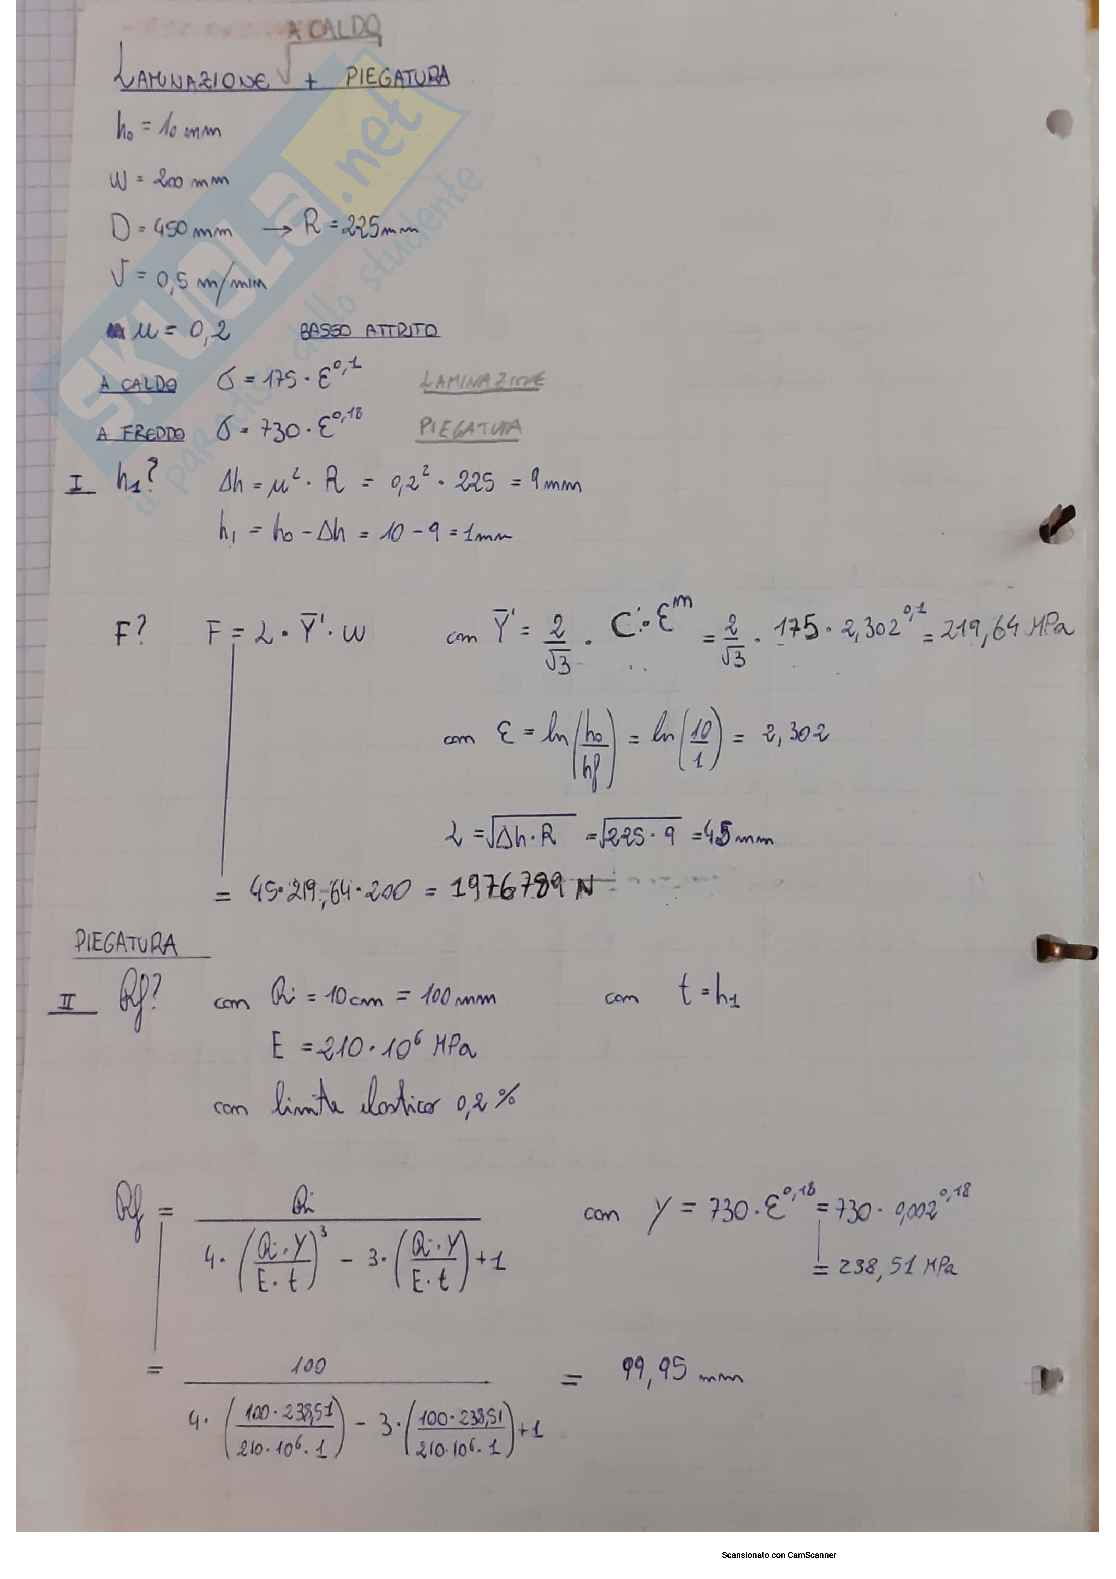 A CALDO
LAMINAZIONE √ + PIEGATURA
h₀ = 10 mm
W = 200 mm
D = 450 mm → R = 225 mm
V = 0,5 m/min
μ = 0,2 BASSO ATTRITO
A CALDO σ = 175 · ε^0,1 LAMINAZIONE
A FREDDO σ = 730 · ε^0,18 PIEGATURA
I h₁? Δh = μ² · R = 0,2² · 225 = 9 mm
h₁ = h₀ - Δh = 10 - 9 = 1 mm
F? F = L · Ȳ' · W con Ȳ' = 2/√3 · C · ε^m = 2/√3 · 175 · 2,302^0,1 = 219,64 MPa
con ε = ln(h₀/hf) = ln(10/1) = 2,302
L = √(Δh · R) = √(225 · 9) = 45 mm
= 45 · 219,64 · 200 = 1976789 N
PIEGATURA
II Rf? con Ri = 10 cm = 100 mm con t = h₁
E = 210 · 10⁶ MPa
con limite elastico 0,2 %
Rf = Ri / (4 · (Ri · Y / E · t)³ - 3 · (Ri · Y / E · t) + 1) con Y = 730 · ε^0,18 = 730 · 0,002^0,18
= 238,51 MPa
= 100 / (4 · (100 · 238,51 / 210 · 10⁶ · 1) - 3 · (100 · 238,51 / 210 · 10⁶ · 1) + 1) = 99,95 mm
SKUOLA.net
il paradiso dello studente
Scansionato con CamScanner